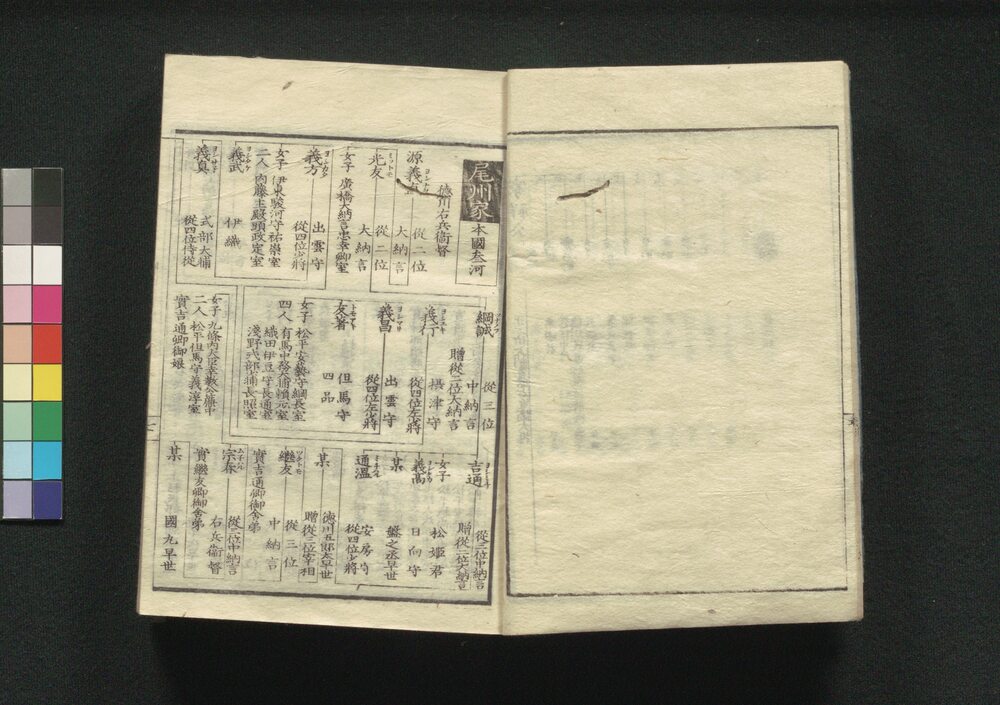 尾州家
本國参河
徳川右兵衛督
源義
從二位
大納言
光友
從二位
大納言
女子 廣橋大納言忠幸卿室
義方
出雲守
從四位少將
女子 伊東駿河守祐崇室
二人 内藤主殿頭政定室
義武
伊織
義真
式部大輔
從四位侍從
綱誠
從三位
中納言
贈從二位大納言
義行
摂津守
從四位左少將
義昌
出雲守
從四位左少將
友著
但馬守
四品
女子 松平安藝守綱長室
四人 有馬中務大輔頼元室
織田伊豆守長通妻
淺野式部少輔長照室
女子 九條内大臣幸教公簾中
二人 松平但馬守義淳室
實吉通卿御娘
吉通
從三位中納言
贈從二位大納言
女子
松姫君
義嵩
日向守
某
盤之丞早世
通温
安房守
從四位少將
某
徳川五郎太早世
贈從三位宰相
繼友
從三位
中納言
實吉通卿御舎弟
宗春
從三位中納言
右兵衛督
實繼友卿御舎弟
某
國丸早世